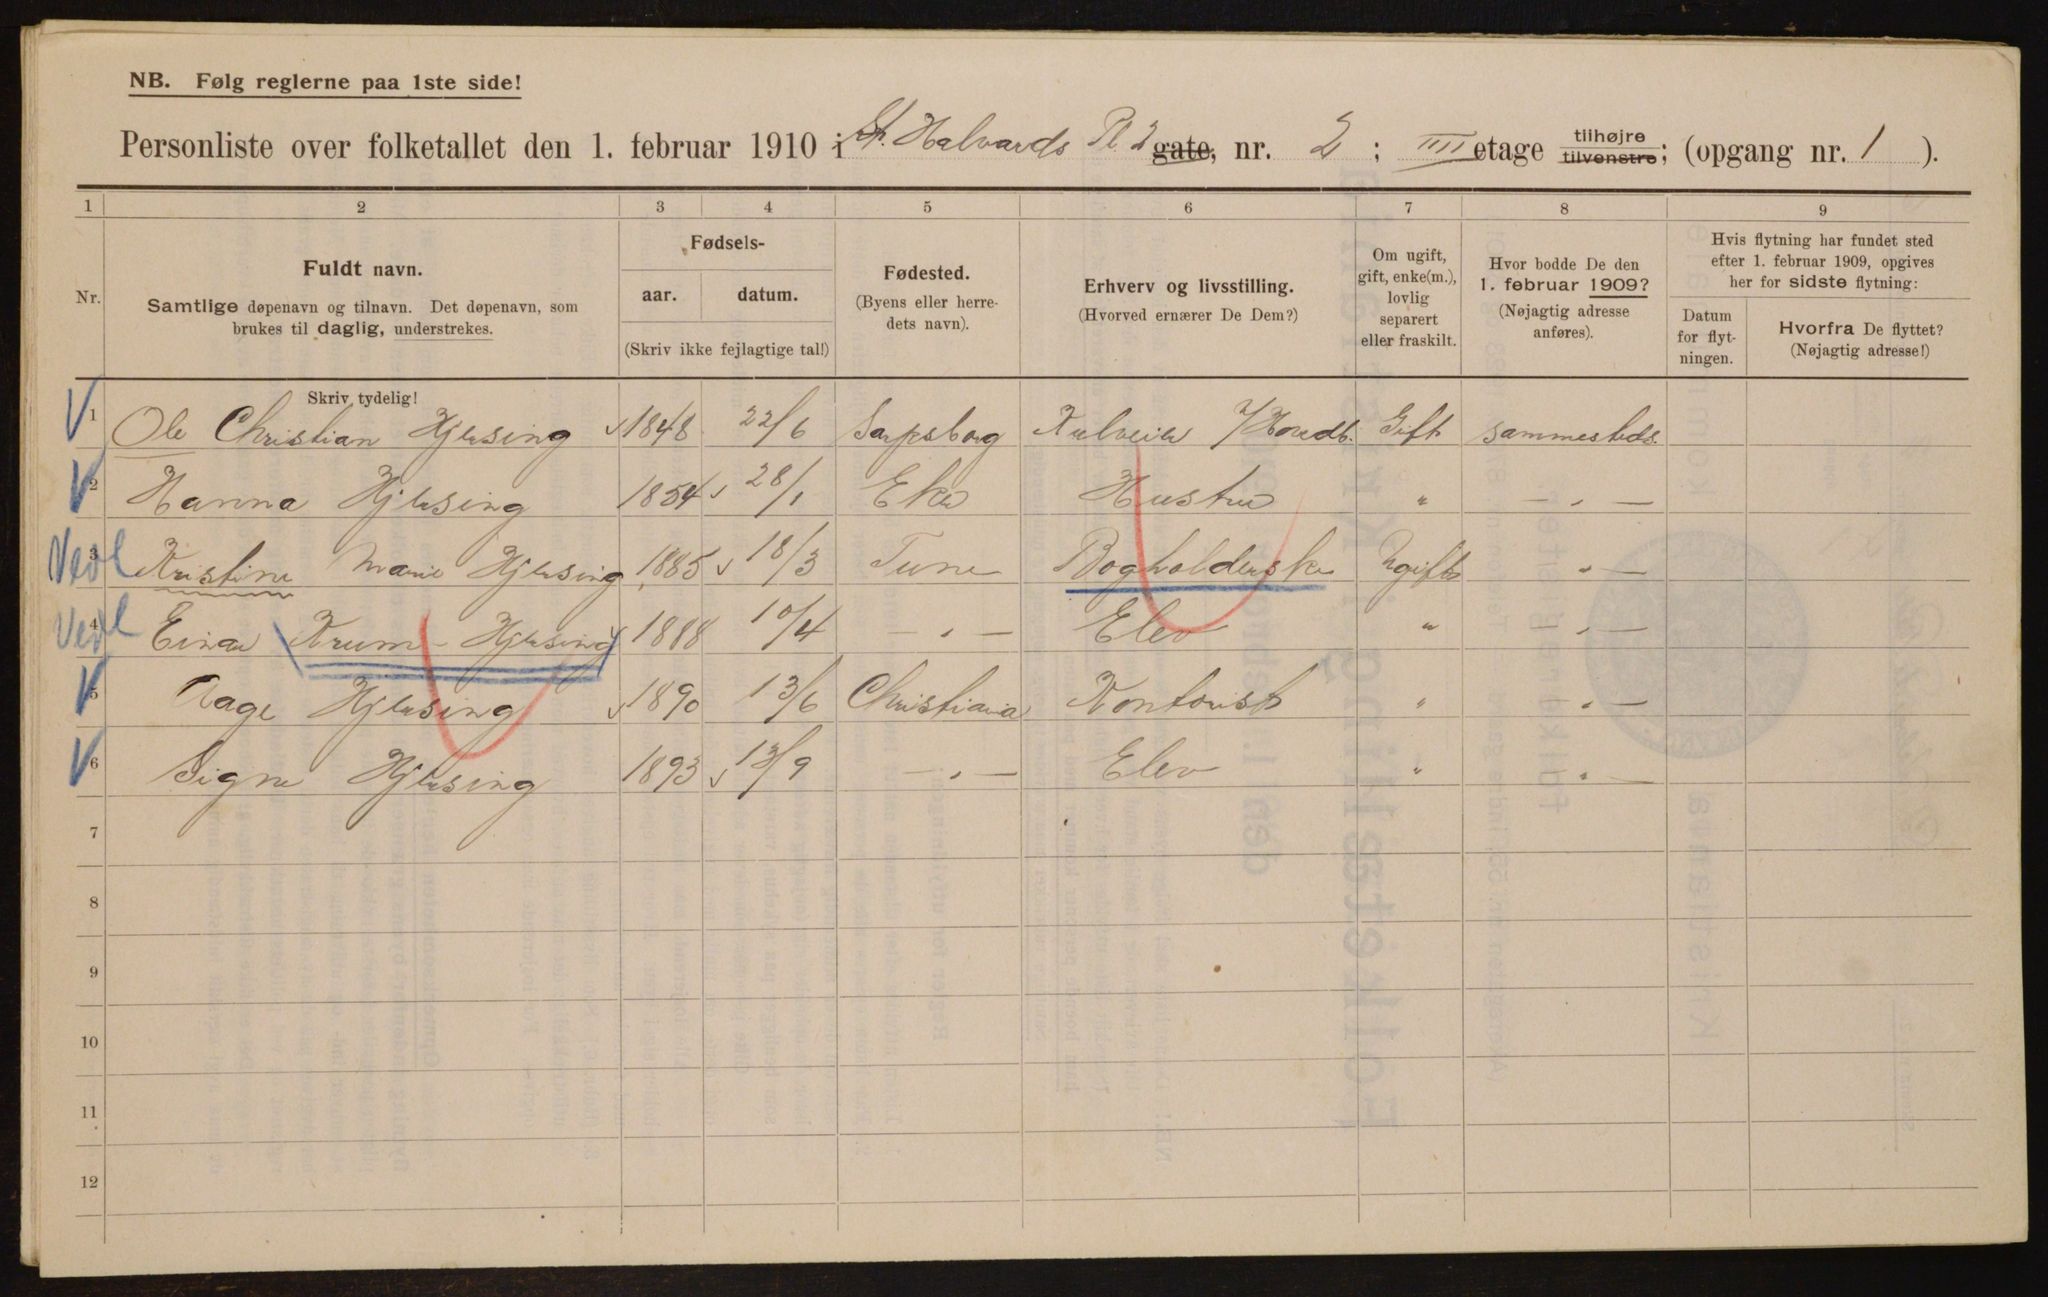 NB. Følg reglerne paa 1ste side!
Personliste over folketallet den 1. februar 1910 i St. Halvards Pl 2 gate, nr. 2 ; IIII etage tilhøjre tilvenstre; (opgang nr. 1 ).
1 2 3 4 5 6 7 8 9
Nr. Fuldt navn. Samtlige døpenavn og tilnavn. Det døpenavn, som brukes til daglig, understrekes.
Fødsels- aar. datum. (Skriv ikke fejlagtige tal!)
Fødested. (Byens eller herredets navn).
Erhverv og livsstilling. (Hvorved ernærer De Dem?)
Om ugift, gift, enke(m.), lovlig separert eller fraskilt.
Hvor bodde De den 1. februar 1909? (Nøjagtig adresse anføres).
Hvis flytning har fundet sted efter 1. februar 1909, opgives her for sidste flytning:
Datum for flytningen. Hvorfra De flyttet? (Nøjagtig adresse!)
Skriv tydelig!
1 Ole Christian Hjelsing 1848 22/6 Sarpsborg Gift sammesteds.
2 Hanna Hjelsing 1854 28/1 Eker Hustru " — " —
Vedl 3 Kristine Marie Hjelsing 1885 18/3 Tune Bogholderske Ugift " —
Vedl 4 Einar Krum-Hjelsing 1888 10/4 — " — Elev " " —
5 Aage Hjelsing 1890 13/6 Christiania Kontorist " " —
6 Signe Hjelsing 1893 13/9 — " — Elev " " —
7
8
9
10
11
12